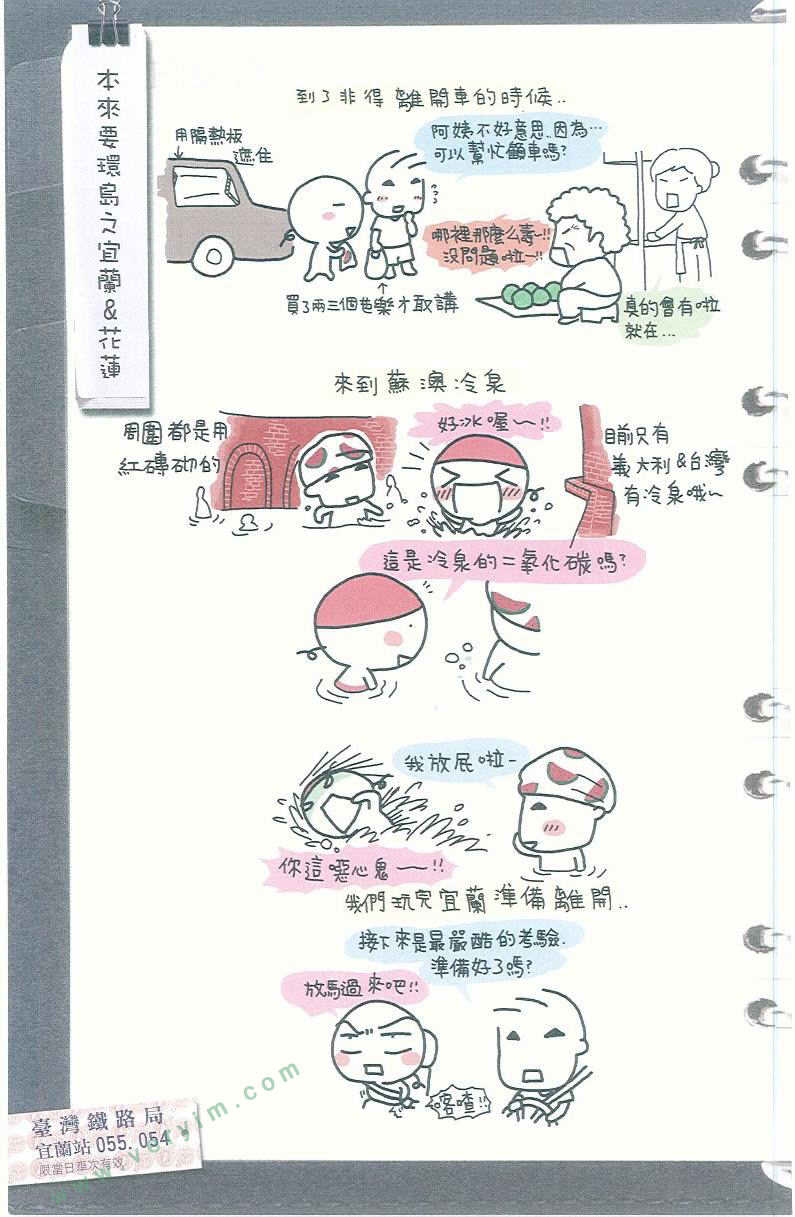 本來要環島之宜蘭&花蓮
到了非得離開車的時候..
用隔熱板
遮住
阿姨不好意思..因為…
可以幫忙顧車嗎?
哪裡那麼么壽~!!
沒問題啦~!!
買了兩三個芭樂才敢講
真的會有啦
就在...
來到蘇澳冷泉
周圍都是用
紅磚砌的
好冰喔~~!!
目前只有
義大利&台灣
有冷泉哦~
這是冷泉的二氧化碳嗎?
我放屁啦~
你這噁心鬼~~!!
我們玩完宜蘭準備離開..
接下來是最嚴酷的考驗.
準備好了嗎?
放馬過來吧!!
喀喳!!
臺灣鐵路局
宜蘭站 055.054
限當日車次有效
www.veryim.com